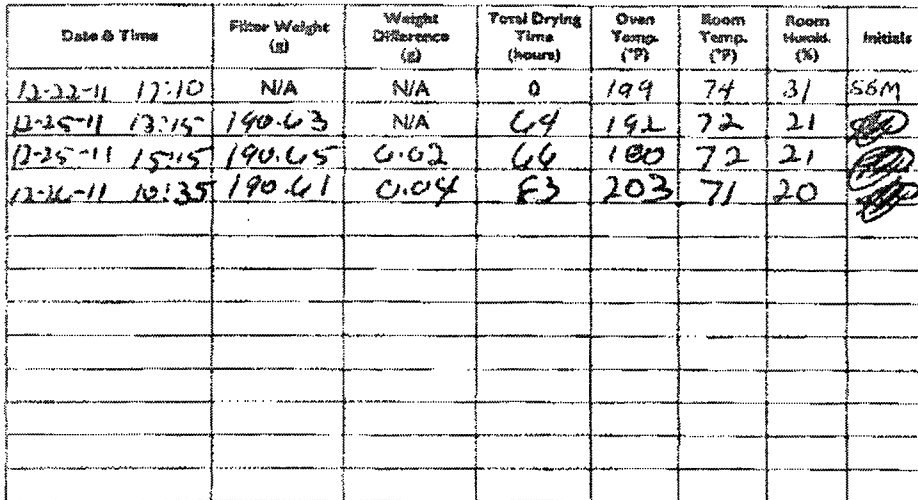 Date & Time Filter Weight (g) Weight Difference (g) Total Drying Time (hours) Oven Temp. (°F) Room Temp. (°F) Room Humid. (%) Initials
12-22-11 17:10 N/A N/A 0 199 74 31 SGM
12-25-11 13:15 190.63 N/A 64 192 72 21
12-25-11 15:15 190.65 0.02 66 72 21
12-26-11 10:35 190.61 0.04 83 203 71 20